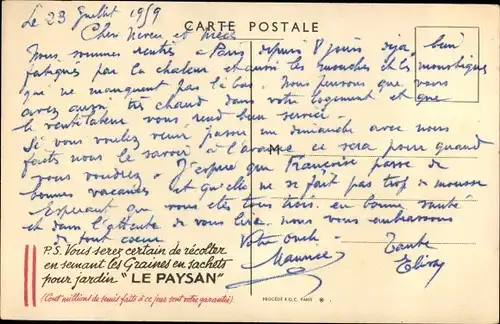 CARTE POSTALE
Le 23 Juillet 1959
Cher Neveu et nièce
Nous sommes rentrés à Paris depuis 8 jours déjà, bien
fatigués par la chaleur et aussi les mouches et les moustiques
qui ne manquent pas là bas. Nous pensons que vous
avez aussi très chaud dans votre logement et que
le ventilateur vous rend bien service.
Si vous voulez venir passer un dimanche avec nous
faites nous le savoir à l'avance ce sera pour quand
vous voudrez. J'espère que Françoise passe de
bonnes vacances et qu'elle ne se fait pas trop de mousse
Espérant que vous êtes tous trois en bonne santé
et dans l'attente de vous lire, nous vous embrassons
de tout coeur.
Votre oncle Tante
Maurice
P.S. Vous serez certain de récolter
en semant les Graines en sachets
pour jardin "LE PAYSAN"
(Cent millions de semis faits à ce jour sont votre garantie).
PROCÉDÉ R.O.C. PARIS